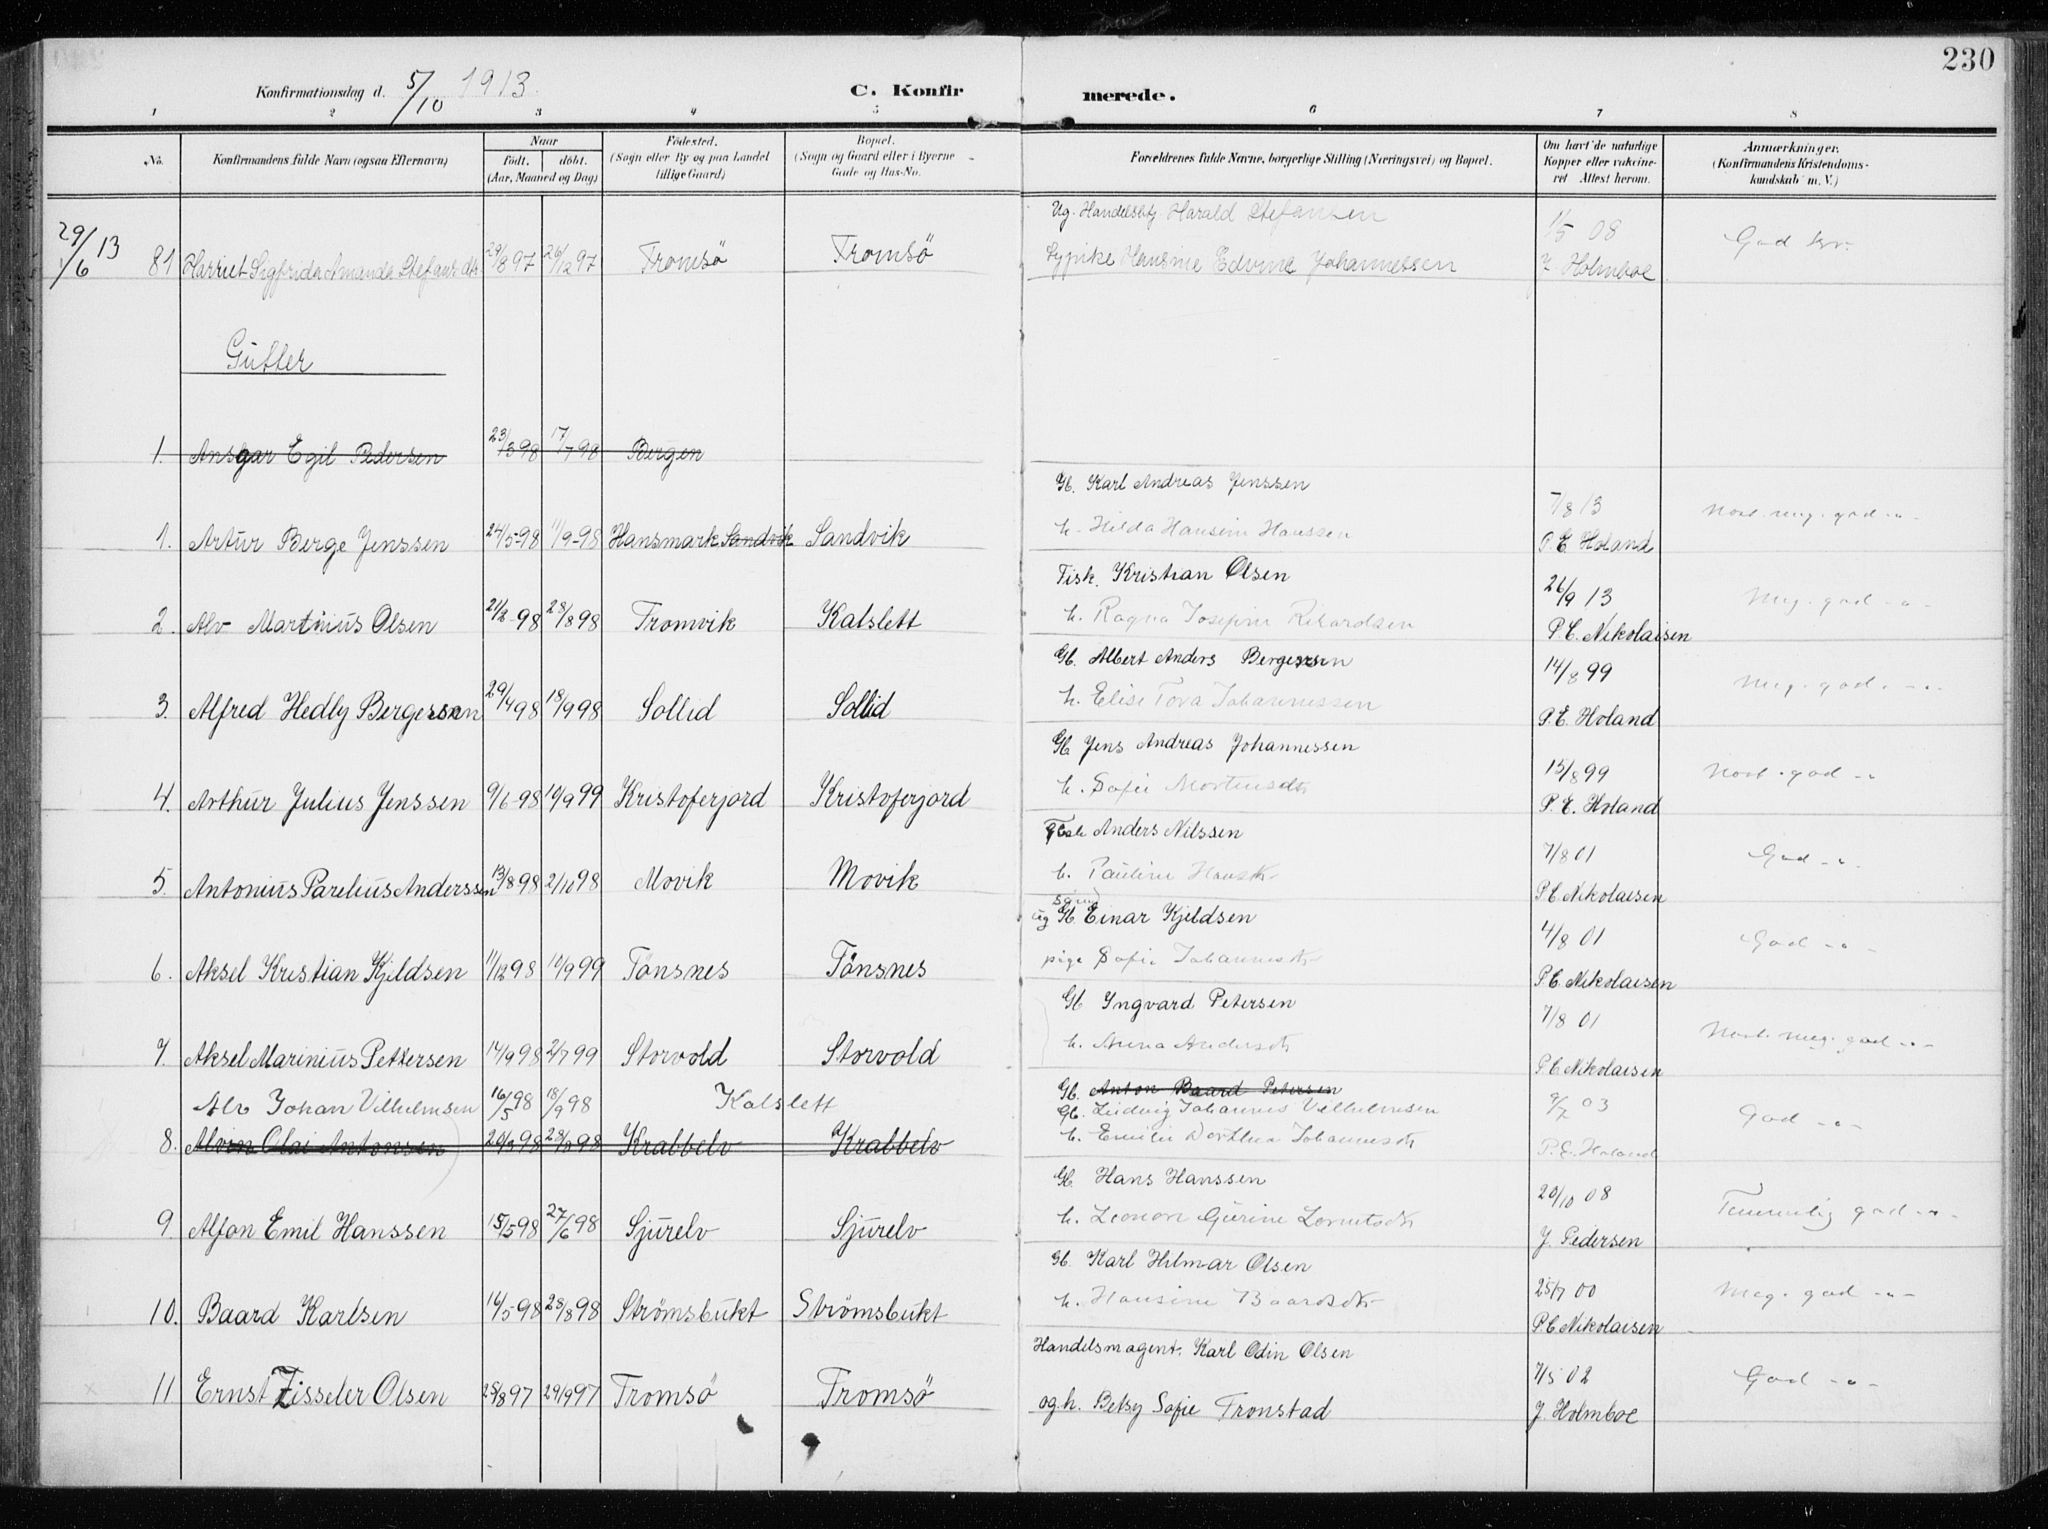 230
Konfirmationsdag d. 5/10 1913.
C. Konfirmerede.
1 2 3 4 5 6 7 8
No. Konfirmandens fulde Navn (ogsaa Efternavn) Naar født. døbt. (Aar, Maaned og Dag) Fødested. (Sogn eller By og paa Landet tillige Gaard) Bopæl. (Sogn og Gaard eller i Byerne Gade og Hus-No. Forældrenes fulde Navne, borgerlige Stilling (Næringsvei) og Bopæl. Om havt de naturlige Kopper eller vakcineret Attest herom. Anmærkninger. (Konfirmandens Kristendomskundskab m. V.)
Ug. Harald Stefansen 1/5 08
29/6 13 81 Harriet Sigfrida Amanda Stefansdtr 29/8 97 26/12 97 Tromsö Tromsö Hansine Edvine Johannessen J. Holmboe God
Gutter
1. Ansgar Egil Pedersen 23/3 98 17/7 98 Bergen
Gb. Karl Andreas Jenssen 7/8 13 Nost. meg. god -"-
1. Artur Berge Jenssen 24/5-98 11/9-98 Hansmark Sandvik Sandvik h. Hilda Hansine Hanssen P.E. Holand
Fisk. Kristian Olsen 26/9 13 Meg. god -"-
2. Alv Martinius Olsen 21/2-98 28/8 98 Tromvik Kalslett h. Ragna Josefine Rikardsen P.C. Nikolaisen
Gb. Albert Anders Bergersen 14/8 99 Meg. god. -"-
3. Alfred Hedly Bergersen 29/4 98 18/9 98 Sollid Sollid h. Elise Tova Johannessen P.E. Holand
Gb Jens Andreas Johannessen 15/8 99 Nost. god -"-
4. Arthur Julius Jenssen 9/6-98 10/9 99 Kristoferjord Kristoferjord h. Sofie Mortensdtr P.E. Holand
Anders Nilssen 7/8 01 God -"-
5. Antonius Parelius Anderssen 13/8 98 2/10 98 Movik Movik h. Pauline Hansdtr P.C. Nikolaisen
ug Gb Einar Kjeldsen 4/8 01 God -"-
6. Aksel Kristian Kjeldsen 11/12 98 10/9 99 Tönsnes Tönsnes pige Sofie Johannesdtr P.C. Nikolaisen
Gb Yngvard Petersen 7/8 01 Nost. meg. god -"-
7. Aksel Marinius Pettersen 14/9 98 2/7 99 Storvold Storvold h. Anna Andersdtr P.C. Nikolaisen
Gb. Anton Baard Petersen
Alv Johan Vilhelmsen 16/5 98 18/9 98 Kalslett Gb. Ludvig Johannes Vilhelmsen 9/7 03 God -"-
8. Alvin Olai Antonsen 20/3 98 28/8 98 Krabbelv Krabbelv h. Emilie Dorthea Johannesdtr P.E. Holand
Gb Hans Hanssen 20/10 08 Temmelig god -"-
9. Alfon Emil Hanssen 15/5 98 27/6 98 Sjurelv Sjurelv h. Leonore Gurine Lorentsdtr J. Pedersen
Gb. Karl Hilmar Olsen 25/7 00 Meg. god -"-
10. Baard Karlsen 14/5-98 28/8 98 Strömsbukt Strömsbukt h. Hansine Baardsdtr P.C. Nikolaisen
Handelsmagent. Karl Odin Olsen 7/5 02 God -"-
11 Ernst Zisseler Olsen 25/8 97 29/9 97 Tromsö Tromsö og h. Betsy Sofie Tronstad J. Holmboe